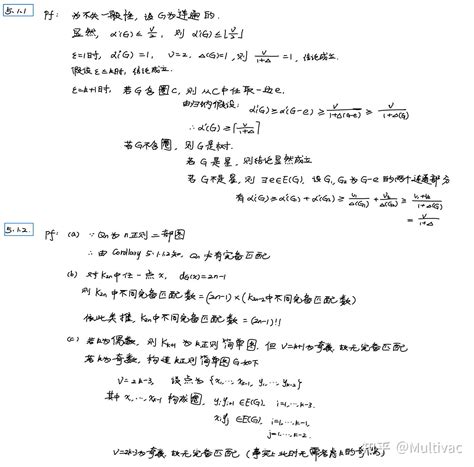 5.1.1 pf: 为不失一般性, 设G为连通的.
显然, α'(G) ≤ v/2, 则 α'(G) ≤ ⌊v/2⌋
ε=1时, α'(G) = 1, v=2, Δ(G)=1, 则 v/(1+Δ) = 1, 结论成立.
假设 ε≤k时, 结论成立.
ε=k+1时, 若G含圈C, 则从C中任取一边e.
由归纳假设: α'(G) ≥ α'(G-e) ≥ v/(1+Δ(G-e)) ≥ v/(1+Δ(G))
∴ α'(G) ≥ ⌈v/(1+Δ)⌉
若G不含圈, 则G是树.
若G是星, 则结论显然成立
若G不是星, 则∃e∈E(G), 设G₁,G₂为G-e的两个连通部分
有 α'(G) ≥ α'(G₁) + α'(G₂) ≥
= v/(1+Δ)
5.1.2. pf: (a) ∵ Qn为n正则二部图
∴ 由 Corollary 5.1.1.2知, Qn有完备匹配
(b) 对K2n中任一点x, dG(x)=2n-1
则K2n中不同完备匹配数 = (2n-1) × (K2n-2中不同完备匹配数)
依此类推, K2n中不同完备匹配数 = (2n-1)!!
(c) 若k为偶数, 则Kk+1为k正则简单图, 但 v=k+1为奇数, 故无完备匹配
若k为奇数, 构造k正则简单图G如下
顶点为
其中 构成圈, ∈E(G),
∈E(G),
故无完备匹配
知乎 @Multivac